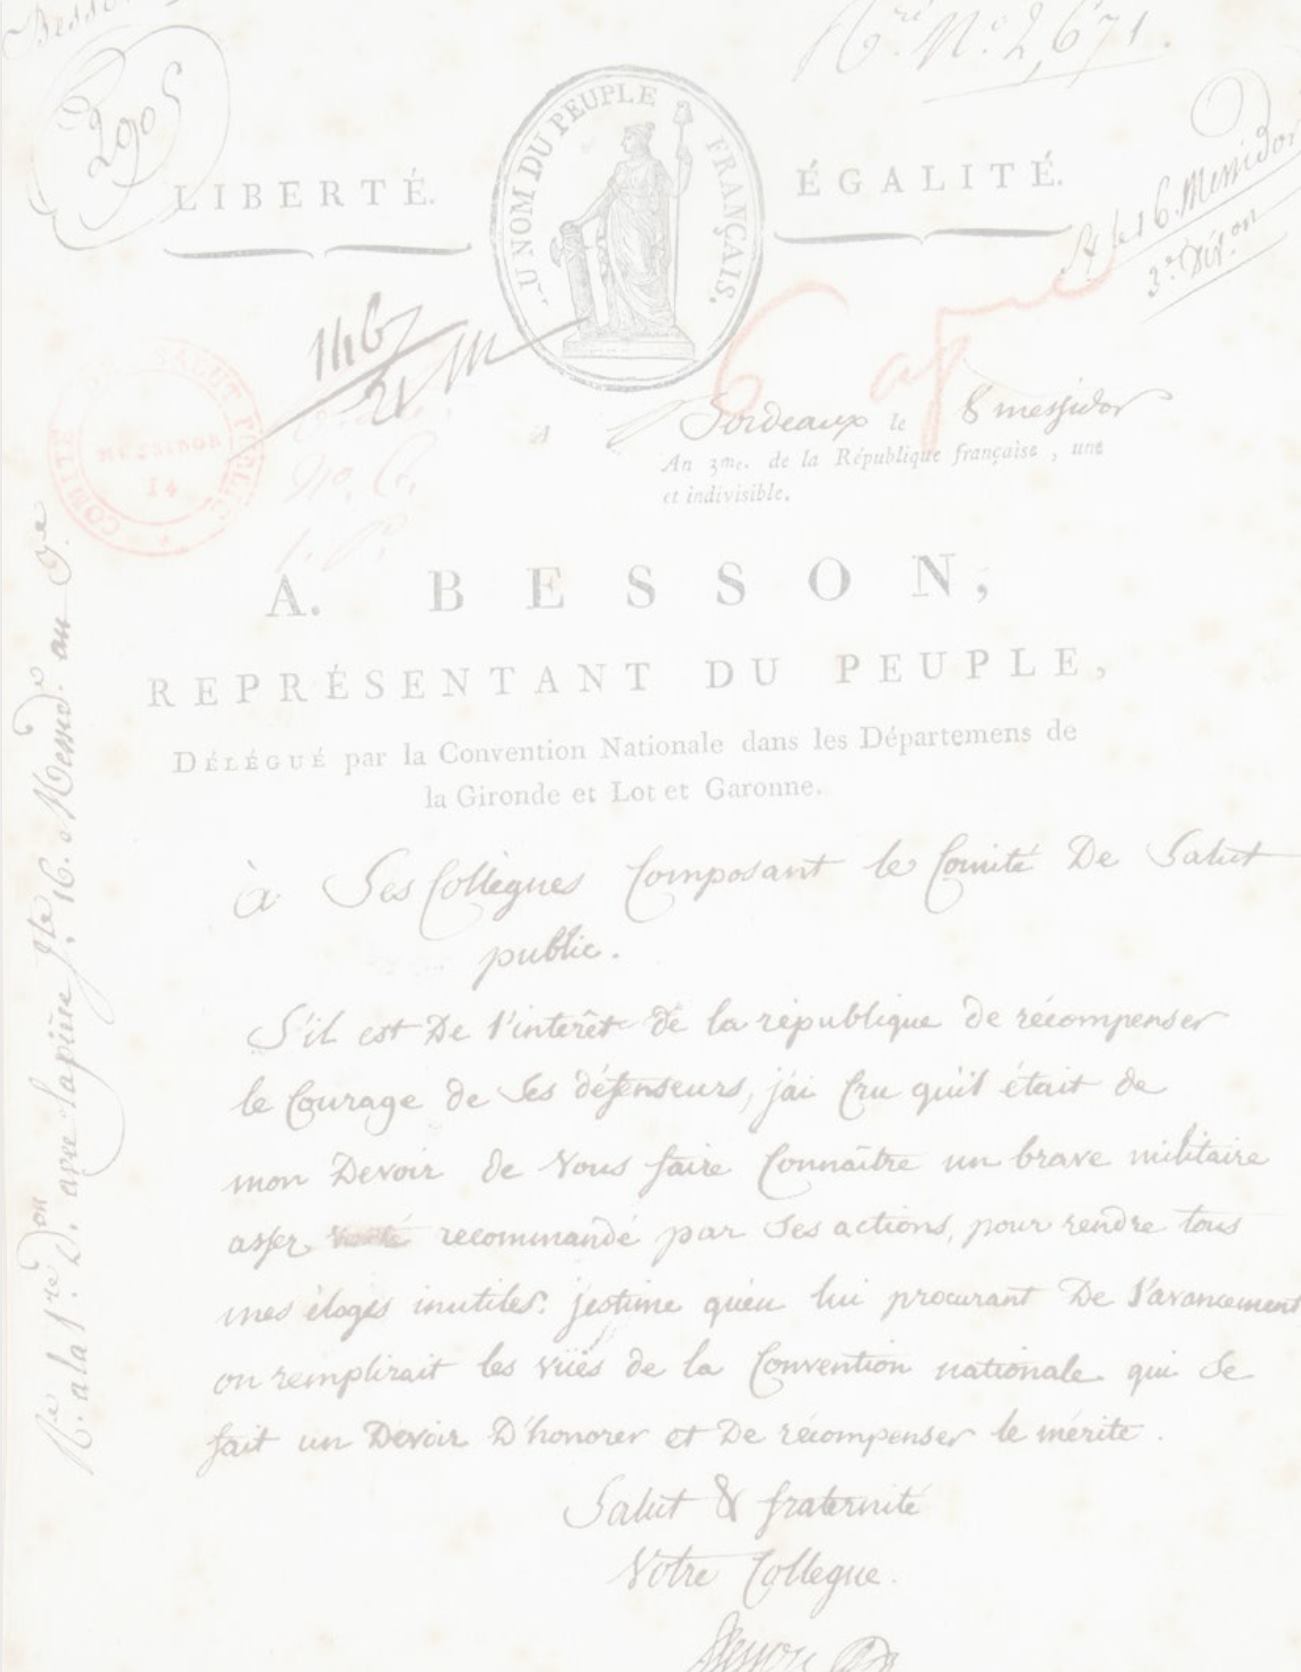 Besson
2905
Nº 2,671.
AU NOM DU PEUPLE FRANÇAIS.
LIBERTÉ.
ÉGALITÉ.
le 16 Messidor
3.e Div.on
COMITÉ DE SALUT PUBLIC
MESSIDOR
14
A Bordeaux le 8 messidor
An 3me. de la République française, une
et indivisible.
A. BESSON,
REPRÉSENTANT DU PEUPLE,
DÉLÉGUÉ par la Convention Nationale dans les Départemens de
la Gironde et Lot et Garonne.
à Ses Collègues Composant le Comité De Salut
public.
S'il est De l'interêt de la république de récompenser
le Courage de Ses défenseurs, j'ai Cru qu'il était de
mon Devoir de Vous faire Connaître un brave militaire
assez recommandé par Ses actions, pour rendre tous
mes éloges inutiles. j'estime qu'en lui procurant De l'avancement
on remplirait les vües de la Convention nationale qui Se
fait un Devoir D'honorer et De récompenser le mérite.
Salut & fraternité
Votre Collegue.
Besson
R.é a la 1.re D.on avec la piéce J.te 16. Messid.or an 3.e